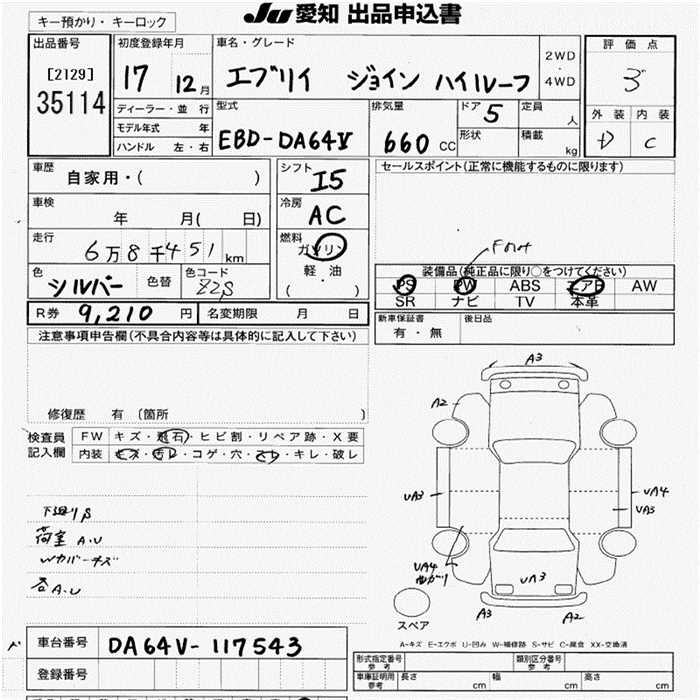 キー預かり・キーロック
JU 愛知 出品申込書
出品番号
[2129]
35114
初度登録年月
17 12月
車名・グレード
エブリイ ジョイン ハイルーフ
2WD
・
4WD
評価点
3
外装 内装
D C
ディーラー・並行
モデル年式 年
ハンドル 左・右
型式
EBD-DA64V
排気量
660 CC
ドア 5
形状
定員 人
積載 kg
車歴
自家用・( )
シフト
I5
セールスポイント(正常に機能するものに限ります)
車検
年 月( 日)
冷房
AC
走行
6万8千451km
燃料
ガソリン
軽・油
( ・ )
Front
色
シルバー
色替
色コード
Z2S
装備品(純正品に限り○をつけてください)
PS PW ABS エアB AW
SR ナビ TV 本革
R券 9,210円
名変期限 月 日
新車保証書
有・無
後日品
注意事項申告欄(不具合内容等は具体的に記入して下さい)
修復歴 有 〔箇所 〕
検査員
記入欄
FW キズ・飛石・ヒビ割・リペア跡・X要
内装 キズ・汚レ・コゲ・穴・スレ・キレ・破レ
下廻りS
荷室 A.U
Wカバーキズ
各A.U
A3
A2
UA3
UA4
UA3
UA4
曲がり
UA3
A3
A2
スペア
A-キズ E-エクボ U-凹み W-補修跡 S-サビ C-腐食 XX-交換済
車台番号
DA64V-117543
登録番号
形式指定番号
参考
類別区分番号
参考
車庫証明用
参考
長さ cm
幅 cm
高さ cm